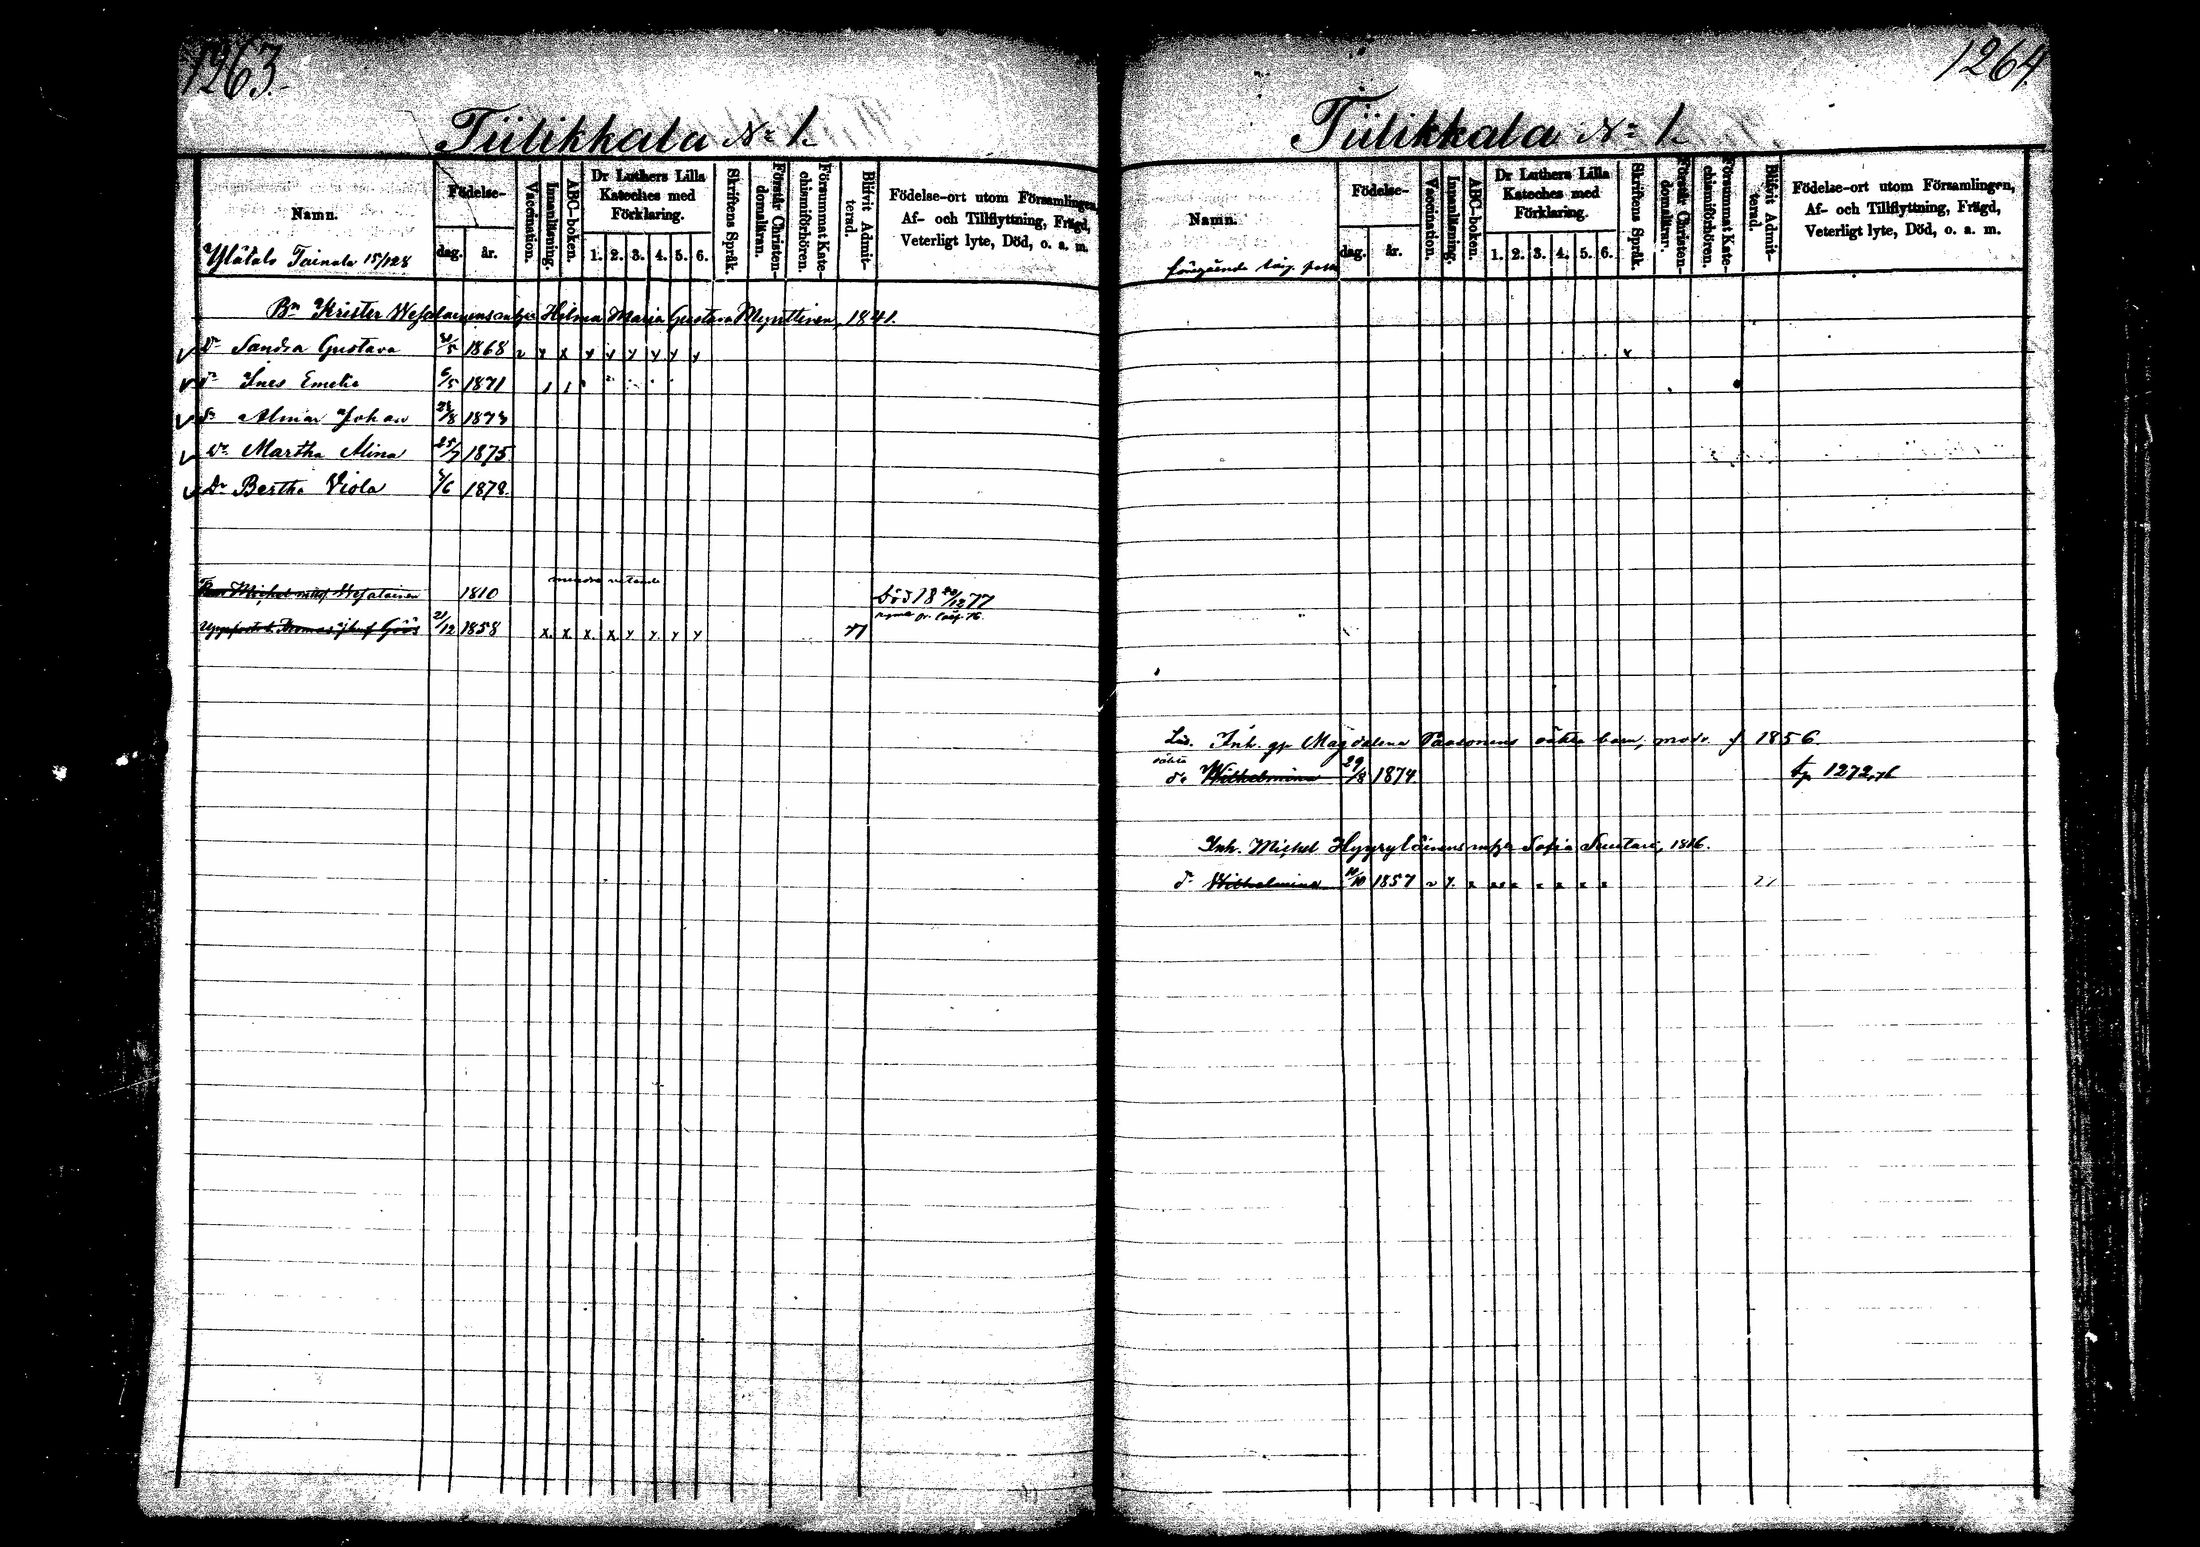 1263.
Tiilikkala No 1.
Namn.
Födelse-
dag. år.
Vaccination.
Innanläsning.
ABC-boken.
Dr Luthers Lilla Kateches med Förklaring.
1. 2. 3. 4. 5. 6.
Skriftens Språk.
Förstår Christendomsläran.
Försummat Katechismiförhören.
Blifvit Admitterad.
Födelse-ort utom Församlingen, Af- och Tillflyttning, Frägd, Veterligt lyte, Död, o. s. m.
Ylätalo Tainala 15/128
Bn Krister Wesalainens Hilma Maria Gustava Myyttinen, 1841.
Dr Sandra Gustava 1868 v y x y y y y y y
dr Ines Emelia 6/5 1871
sn Almar Johan 1873
dr Martha Alina 25/7 1875
Dr Bertha Viola 1878.
mindre vetande
Michel Wesalainen 1810 Död 18 77
Thomas Göös 21/12 1858 x. x. x. x. y y. y y 77
1264
Tiilikkala No 1.
Namn.
Födelse-
dag. år.
Vaccination.
Innanläsning.
ABC-boken.
Dr Luthers Lilla Kateches med Förklaring.
1. 2. 3. 4. 5. 6.
Skriftens Språk.
Förstår Christendomsläran.
Försummat Katechismiförhören.
Blifvit Admitterad.
Födelse-ort utom Församlingen, Af- och Tillflyttning, Frägd, Veterligt lyte, Död, o. s. m.
Inh. Magdalena Paasonens oäkta barn, mod. f 1856.
oäkta
dr Wilhelmina 29/8 1874. 1272, 76
Inh. Michel Hyyryläinens Sofia Suutari, 1816.
dr Wilhelmina 1857